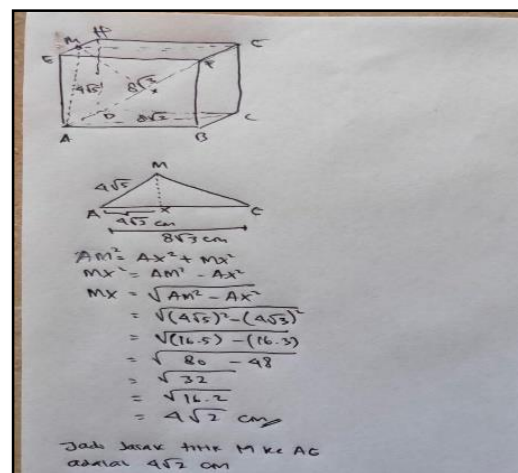 M H
E
G
F
4√5
8√3
x
D
8√2
C
A
B
M
4√5
A
x
4√3 cm
8√3 cm
AM² = AX² + MX²
MX² = AM² - AX²
MX = √AM² - AX²
= √(4√5)² - (4√3)²
= √(16.5) - (16.3)
= √80 - 48
= √32
= √16.2
= 4√2 cm
Jadi Jarak titik M ke AG
adalah 4√2 cm